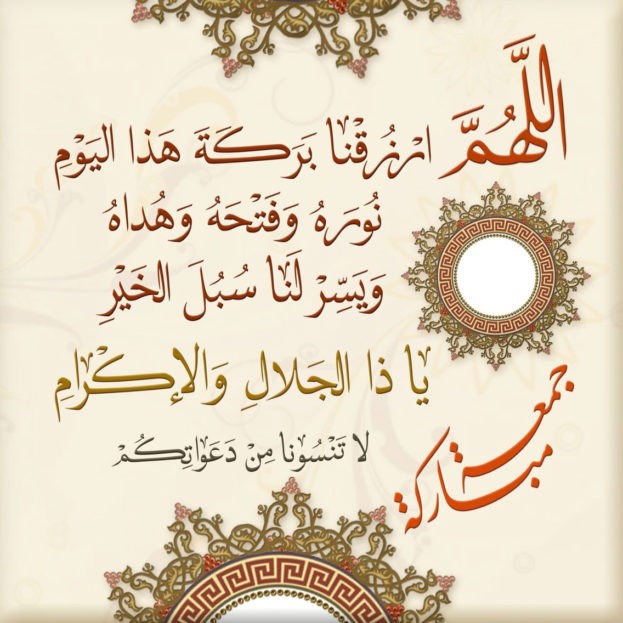 اللَّهُمَّ ارْزُقْنا بَرَكَةَ هَذا اليَوْمِ
نُورَهُ وَفَتْحَهُ وَهُداهُ
وَيَسِّرْ لَنا سُبُلَ الخَيْرِ
يا ذا الجَلالِ وَالإكْرامِ
لا تَنْسُونا مِنْ دَعَواتِكُمْ
جمعة
مباركة